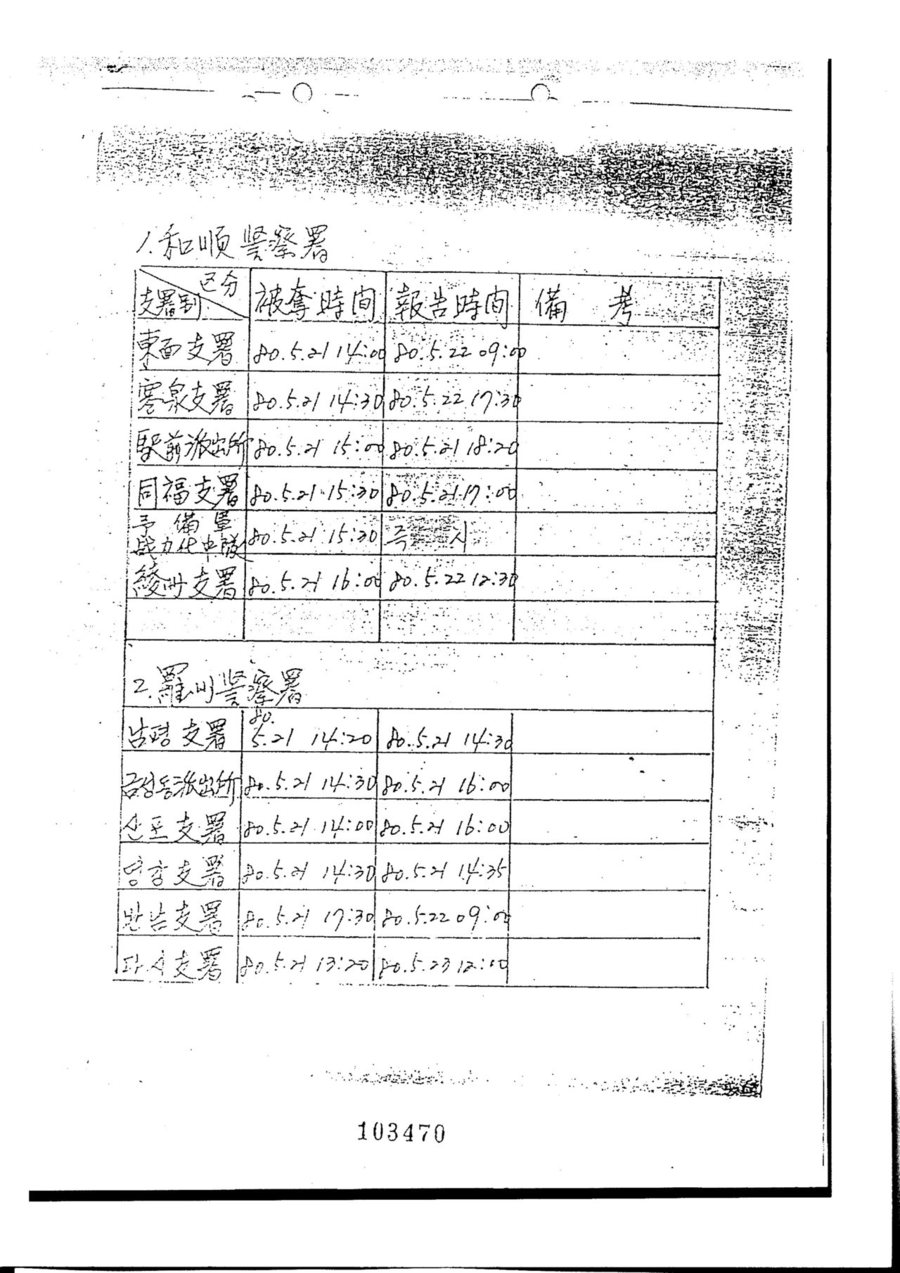 1. 和順警察署
区分
支署別 被奪時間 報告時間 備 考
東面支署 80.5.21 14:00 80.5.22 09:00
寒泉支署 80.5.21 14:30 80.5.22 17:30
駅前派出所 80.5.21 15:00 80.5.21 18:20
同福支署 80.5.21 15:30 80.5.21 17:00
予備軍
战力化中隊 80.5.21 15:30 즉 시
綾州支署 80.5.21 16:00 80.5.22 12:30
2. 羅州警察署
남평 支署 80.5.21 14:20 80.5.21 14:30
금성동派出所 80.5.21 14:30 80.5.21 16:00
산포 支署 80.5.21 14:00 80.5.21 16:00
영강支署 80.5.21 14:30 80.5.21 14:35
반남支署 80.5.21 17:30 80.5.22 09:00
다시支署 80.5.21 13:20 80.5.23 12:00
103470